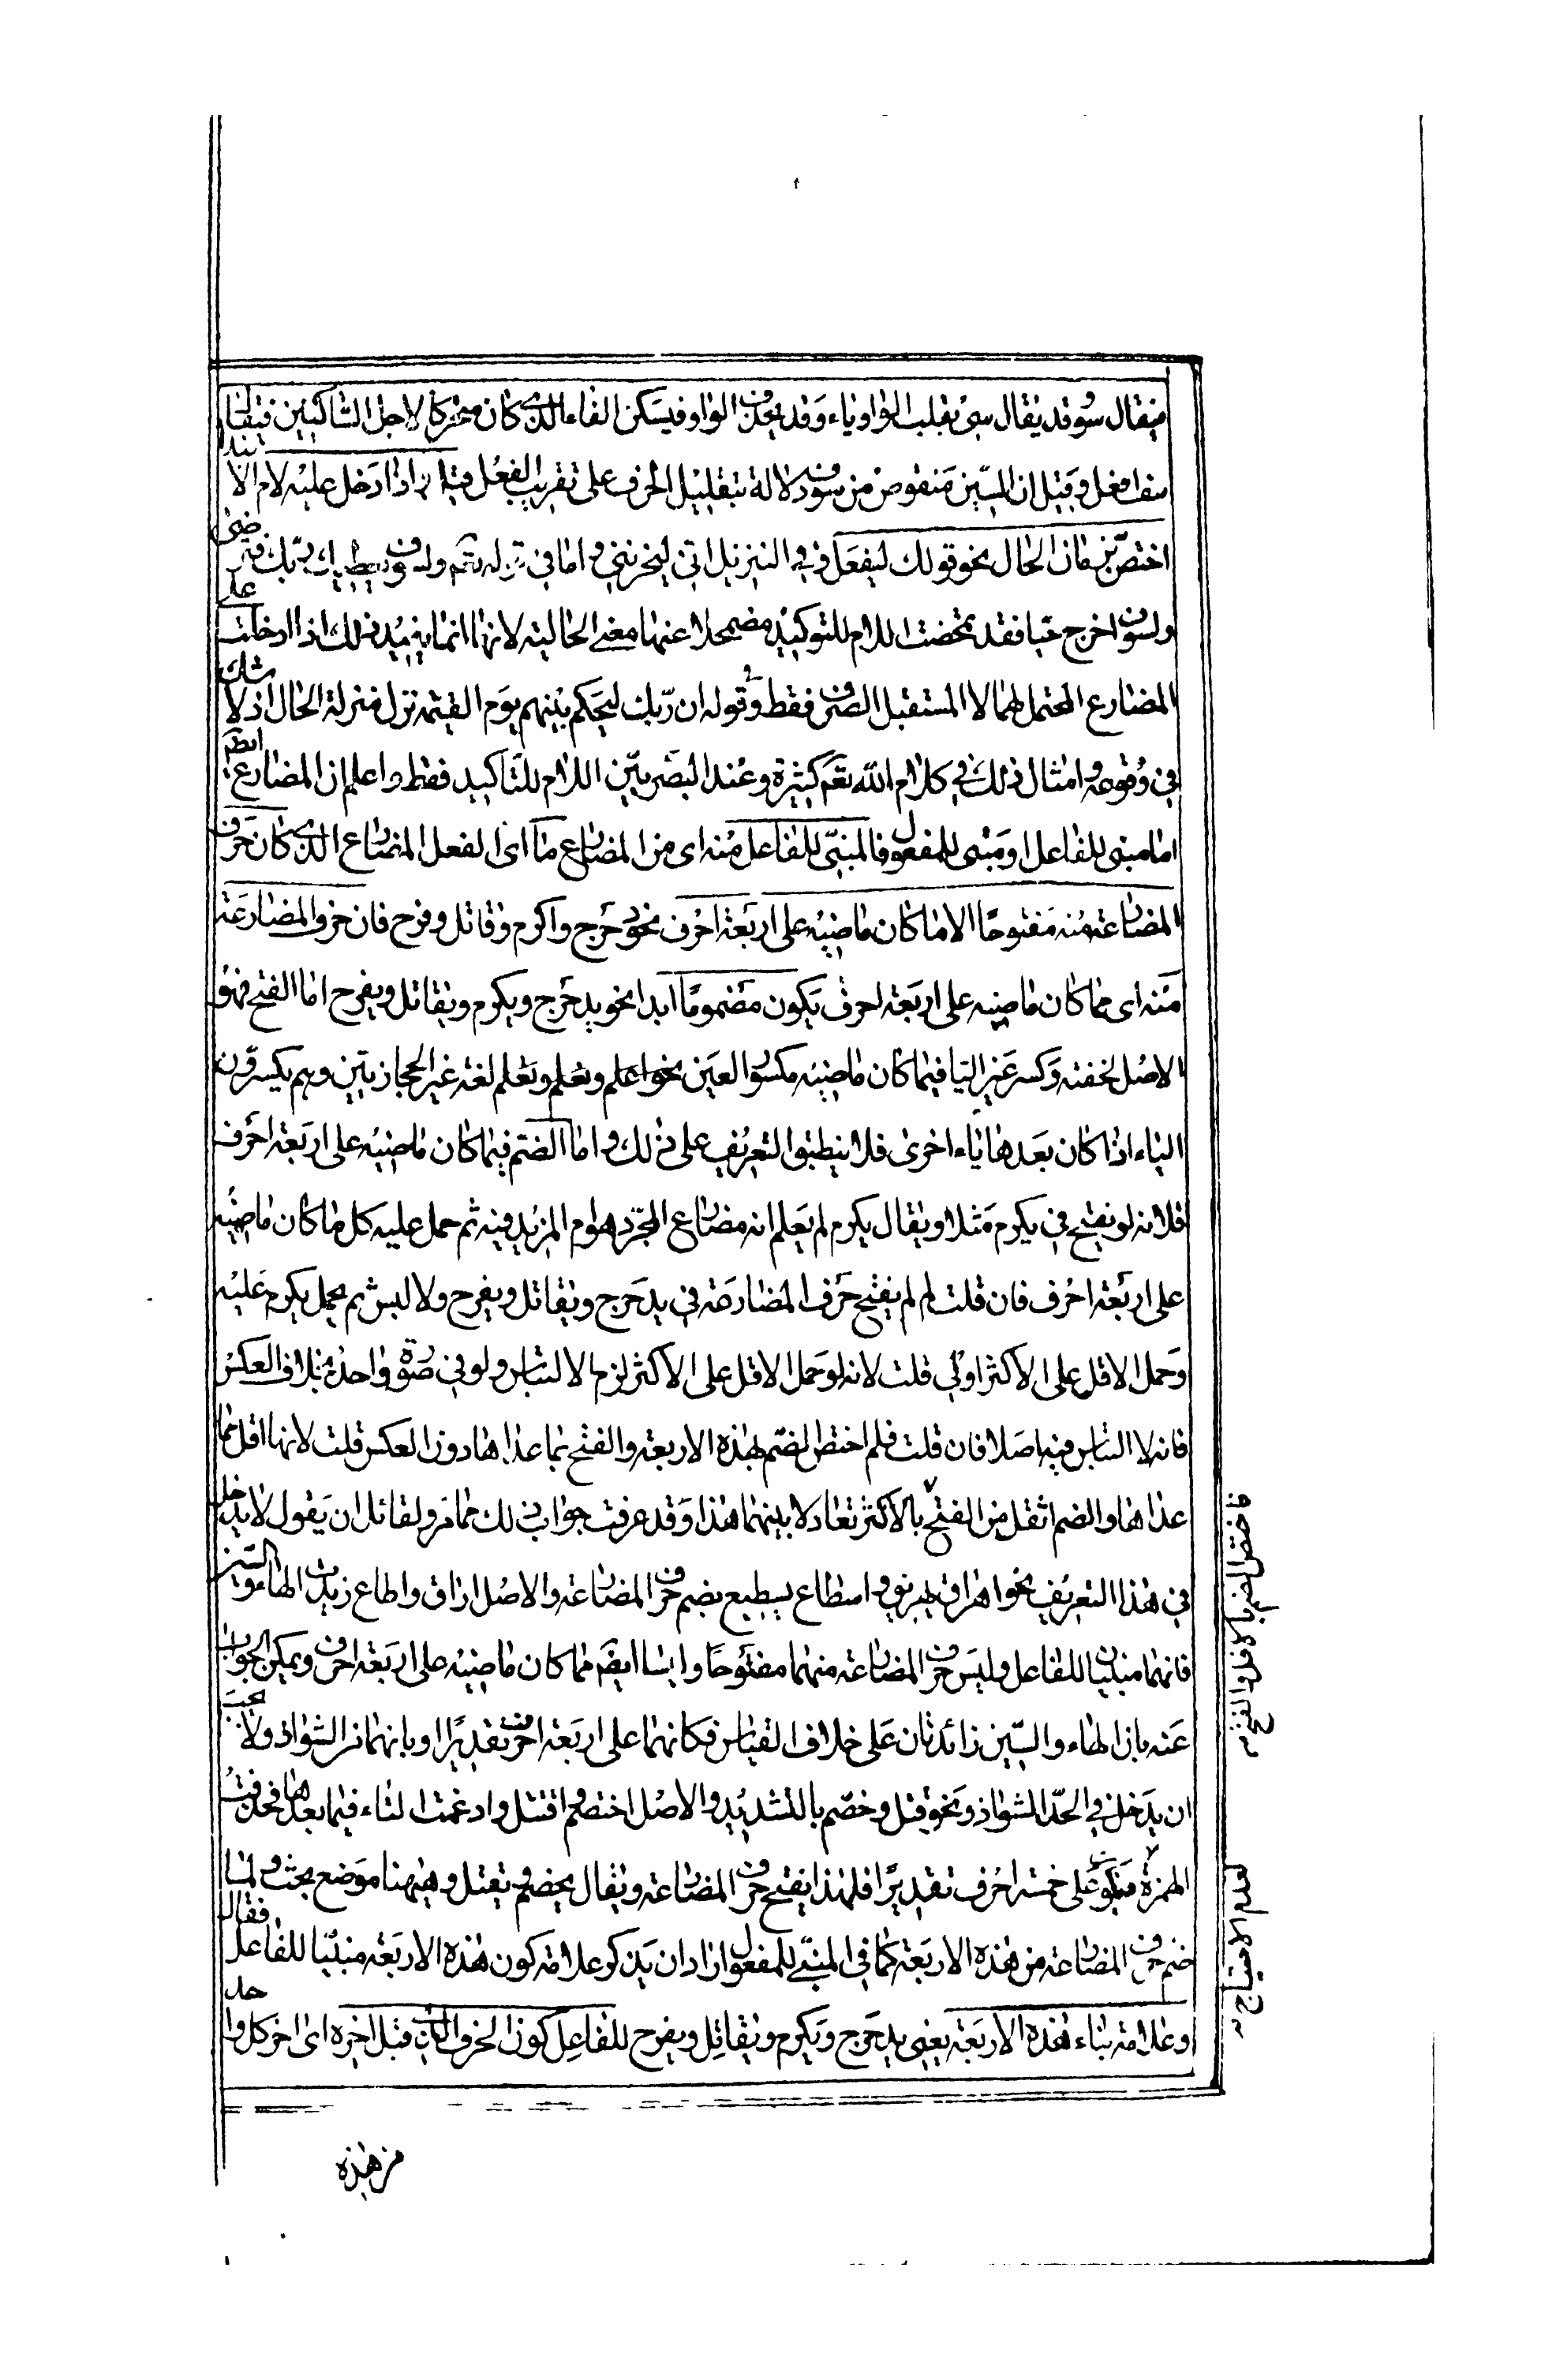 فيقال سو وقد يقال سى بقلب الواو ياء وقد يحذف الواو فيسكن الفاء الذى كان متحركا لاجل الساكنين فيقال
سف افعل وقيل ان السين منقوص من سوف دلالة بتقليل الحرف على تقريب الفعل واذا دخل عليه لام الابتداء
اختص بزمان الحال نحو قولك ليفعل وفى التنزيل انى ليحزننى واما فى قوله تعم ولسوف يعطيك ربك فترضى
ولسوف اخرج حيا فقد تمحضت اللام للتوكيد مضمحلا عنها معنى الحالية لانها انما يفيد ذلك اذا ادخلت على
المضارع المحتمل لهما لا المستقبل الصرف فقط وقوله ان ربك ليحكم بينهم يوم القيمة نزل منزلة الحال اذ لا شك
فى وقوعه وامثال ذلك فى كلام الله تعم كثيرة وعند البصريين اللام للتاكيد فقط واعلم ان المضارع ايضم
اما مبنى للفاعل او مبنى للمفعول فالمبنى للفاعل منه اى من المضارع ما اى الفعل المضارع الذى كان حرف
المضارعة منه مفتوحا الا ما كان ماضيه على اربعة احرف نحو دحرج واكرم وقاتل وفرح فان حرف المضارعة
منه اى مما كان ماضيه على اربعة احرف يكون مضموما ابدا نحو يدحرج ويكرم ويقاتل ويفرح اما الفتح فهو
الاصل لخفته وكسر غير الياء فيما كان ماضيه مكسور العين نحو اعلم ونعلم وتعلم لغة غير الحجازيين وهم يكسرون
الياء اذا كان بعدها ياء اخرى فلا ينطبق التعريف على ذلك واما الضم فيما كان ماضيه على اربعة احرف
فلانه لو يفتح فى يكرم مثلا ويقال يكرم لم يعلم انه مضارع المجرد هو ام المزيد فيه ثم حمل عليه كل ما كان ماضيه
على اربعة احرف فان قلت لم لم يفتح حرف المضارعة فى يدحرج ويقاتل ويفرح ولا لبس ثم يحمل يكرم عليه
وحمل الاقل على الاكثر اولى قلت لانه لو حمل الاقل على الاكثر لزم الالتباس ولو فى صورة واحدة بخلاف العكس
فانه لا التباس فيه اصلا فان قلت فلم اختص الضم بهذه الاربعة والفتح بما عداها دون العكس قلت لانها اقل مما
عداها والضم اثقل من الفتح بالاكثر تعادلا بينهما هذا وقد عرفت جواب ذلك مما مر ولقائل ان يقول لا يدخل
فى هذا التعريف نحو اهراق يهريق واسطاع يسطيع بضم حرف المضارعة والاصل اراق واطاع زيدت الهاء والسين
فانهما مبنيان للفاعل وليس حرف المضارعة منهما مفتوحا وليسا ايضم مما كان ماضيه على اربعة احرف ويمكن الجواب
عنه بان الهاء والسين زائدتان على خلاف القياس فكانهما على اربعة احرف تقديرا او بانهما من الشواذ ولا يجب
ان يدخل فى الحد الشواذ ونحو قتل وخصم بالتشديد والاصل اختصم واقتتل وادغمت التاء فيما بعدها فحذفت
الهمزة فيكون على خمسة احرف تقديرا فلهذا يفتح حرف المضارعة ويقال يخصم ويقتل وهيهنا موضع بحث ولما
ضم حرف المضارعة من هذه الاربعة كما فى المبنى للمفعول اراد ان يذكر علامة كون هذه الاربعة مبنيا للفاعل فقال
وعلامة بناء هذه الاربعة يعنى يدحرج ويكرم ويقاتل ويفرح للفاعل كون الحرف الذى قبل اخره اى اخر كل واحد
من هذه
فاختص الضم بالاقل والفتح
لعدم الاحتياج